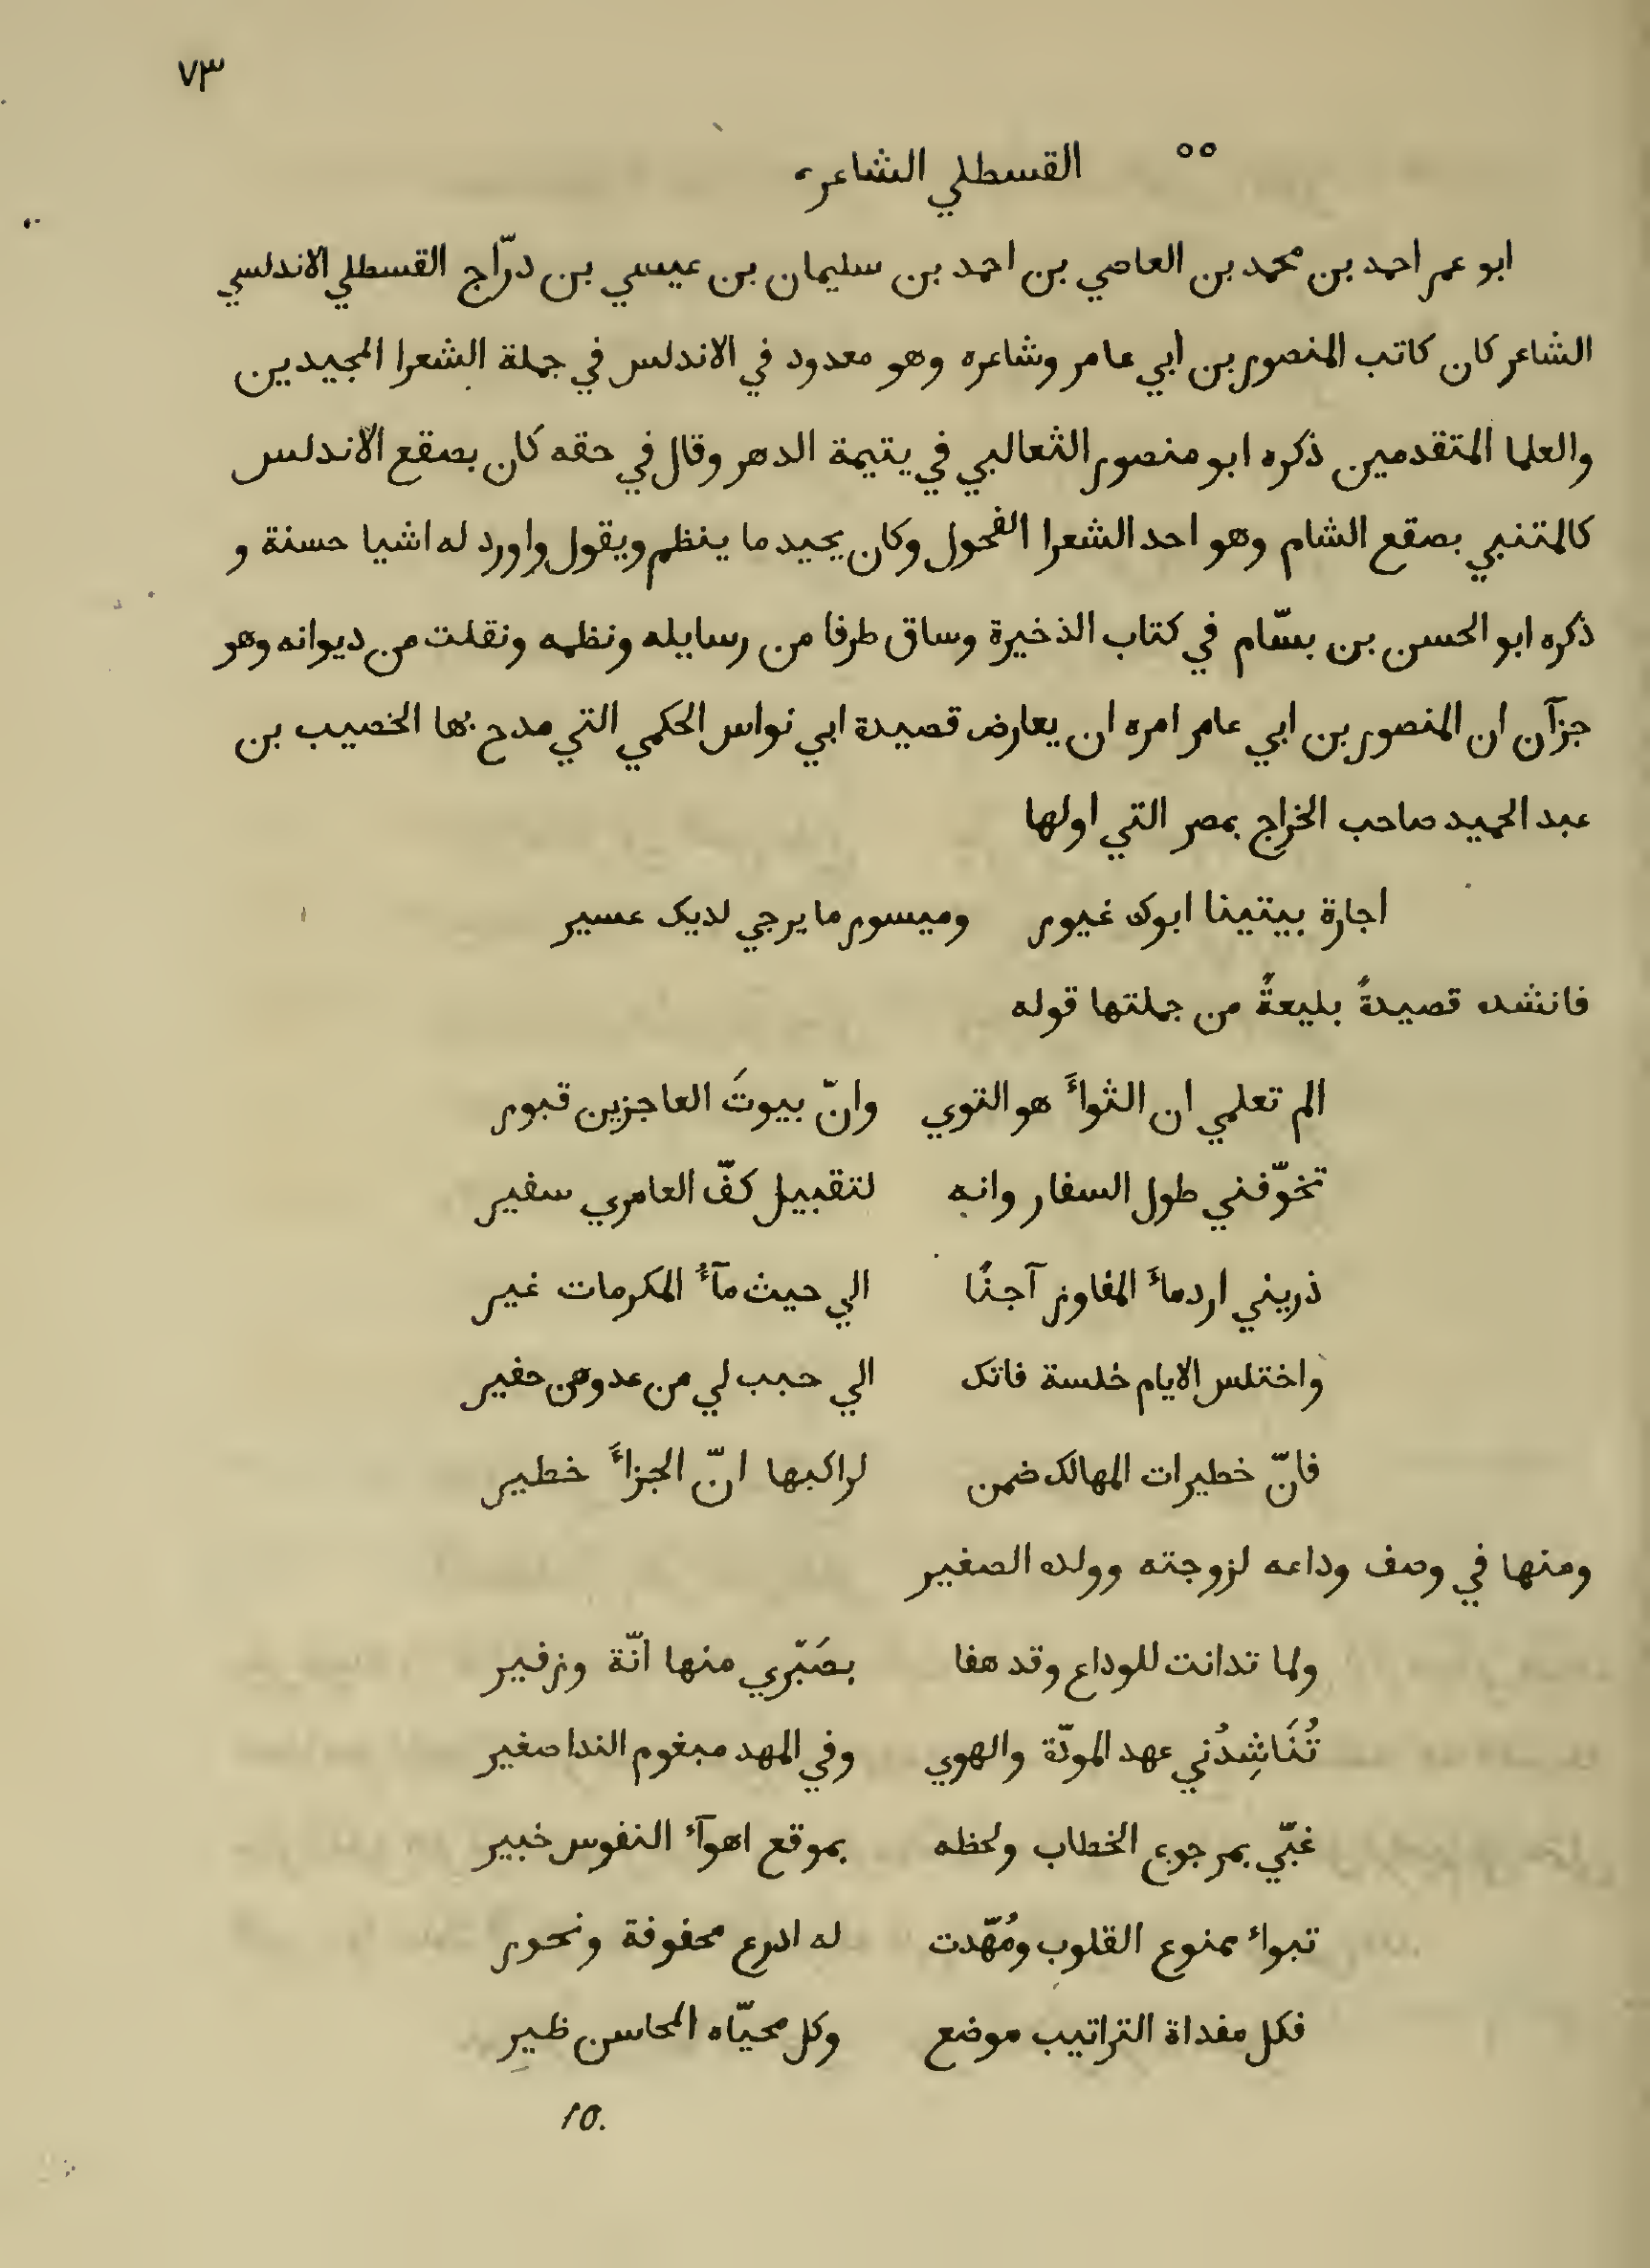 ٧٣
٥٥ القسطلي الشاعر
ابو عمر احمد بن محمد بن العاصي بن احمد بن سليمان بن عيسي بن درّاج القسطلي الاندلسي
الشاعر كان كاتب المنصور بن أبي عامر وشاعره وهو معدود في الاندلس في جملة الشعرا المجيدين
والعلما المتقدمين ذكره ابو منصور الثعالبي في يتيمة الدهر وقال في حقه كان بصقع الأندلس
كالمتنبي بصقع الشام وهو احد الشعرا الفحول وكان يجيد ما ينظم ويقول واورد له اشيا حسنة و
ذكره ابو الحسن بن بسّام في كتاب الذخيرة وساق طرفا من رسايله ونظمه ونقلت من ديوانه وهو
جزآن ان المنصور بن ابي عامر امره ان يعارض قصيدة ابي نواس الحكمي التي مدح بها الخصيب بن
عبد الحميد صاحب الخراج بمصر التي اولها
اجارة بيتينا ابوك غيور وميسور ما يرجي لديك عسير
فانشده قصيدةً بليعةً من جملتها قوله
الم تعلمي ان الثواءَ هو التوي وانّ بيوتَ العاجزين قبور
تخوّفني طول السفار وانه لتقبيل كفّ العامري سفير
ذريني ارد ماءَ المفاوز آجنًا الي حيث مآءُ المكرمات غير
واختلس الايام خلسة فاتك الي حبب لي من عدوهن حفير
فانّ خطيرات المهالك ضمن لراكبها انّ الجزاءَ خطير
ومنها في وصف وداعه لزوجته وولده الصغير
ولما تدانت للوداع وقد هفا بصَبّري منها انّة وزفير
تُنَاشِدُني عهد المودّة والهوي وفي المهد مبغوم الندا صغير
غبّي بمرجوع الخطاب ولحظه بموقع اهوآء النفوس خبير
تبواء بمنوع القلوب ومُهّدت له ادرع محفوفة ونحور
فكل مفداة التراتيب موضع وكل محيّاه المحاسن ظير
10.